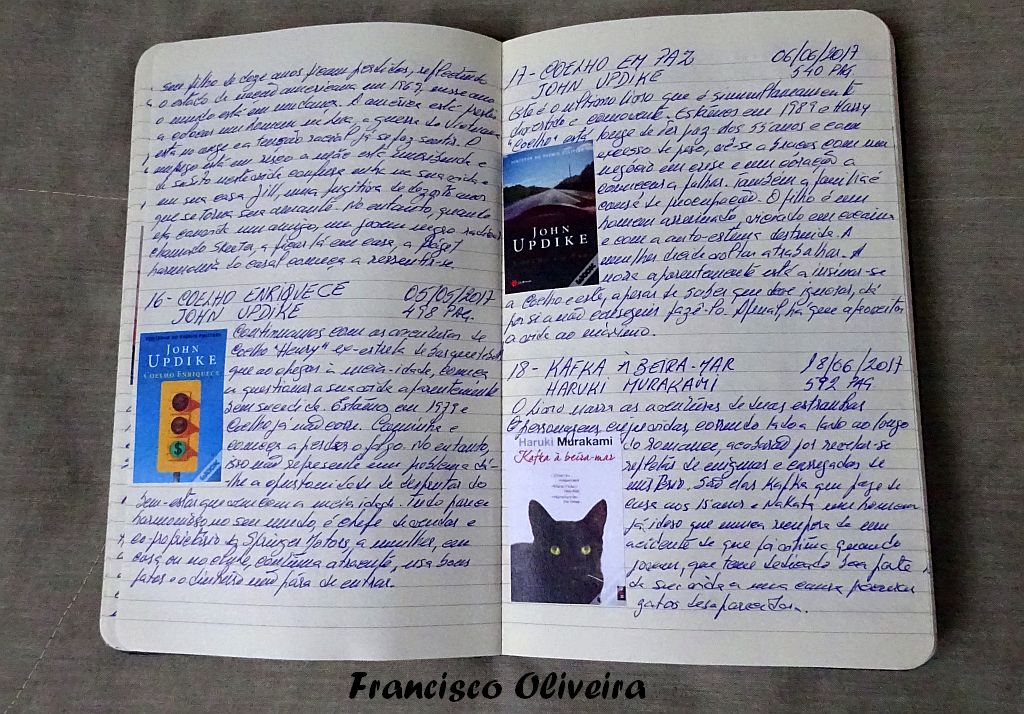 seu filho de doze anos ficam perdidos, reflectindo
o estado da nação americana em 1969, nesse ano
o mundo está em mudança. A américa está prestes
a colocar um homem na lua, a guerra do Vietname
está no auge e a tensão racial já se faz sentir. O
emprego está em risco a mãe está moribunda e
de súbito neste caos entra na sua vida e
em sua casa Jill, uma fugitiva de dezoito anos
que se torna sua amante. No entanto, quando
ela convida um amigo, um jovem negro radical
chamado Skeeter, a ficar lá em casa, a frágil
harmonia do casal começa a ressentir-se.
16- COELHO ENRIQUECE 05/05/2017
JOHN UPDIKE 498 PAG.
VENCEDOR DO PRÉMIO PULITZER
JOHN
UPDIKE
COELHO ENRIQUECE
$
Continuamos com as aventuras de
Coelho "Harry" ex-estrela de basquetebol
que ao chegar à meia-idade, começa
a questionar a sua vida aparentemente
bem sucedida. Estamos em 1979 e
Coelho já não corre. Caminha e
começa a perder o fôlego. No entanto,
isso não representa um problema dá-
lhe a oportunidade de desfrutar do
bem-estar que vem com a meia idade. Tudo parece
harmonioso no seu mundo, é chefe de vendas e
co-proprietário da Springer Motors, a mulher, em
casa ou no clube, continua atraente, usa bons
fatos e o dinheiro não para de entrar.
17- COELHO EM PAZ 06/06/2017
JOHN UPDIKE 540 PAG.
Este é o último livro que é simultaneamente
divertido e comovente. Estamos em 1989 e Harry
"Coelho" está longe de ter paz aos 55 anos e com
VENCEDOR DO PRÉMIO PULITZER
JOHN
UPDIKE
COELHO EM PAZ
excesso de peso, vê-se a braços com um
negócio em crise e um coração a
começar a falhar. Também a família é
causa de preocupação. O filho é um
homem arruinado, viciado em cocaína
e com a auto-estima destruída. A
mulher decide voltar a trabalhar. A
nora aparentemente está a insinuar-se
a Coelho e este, apesar de saber que deve ignorar, dá
por si a não conseguir fazê-lo. Afinal, há que aproveitar
a vida ao máximo.
18- KAFKA À BEIRA-MAR 18/06/2017
HARUKI MURAKAMI 592 PAG
O livro narra as aventuras de duas estranhas
personagens, cujas vidas, correndo lado a lado ao longo
Haruki Murakami
Kafka à beira-mar
do romance, acabarão por revelar-se
repletas de enigmas e carregadas de
mistério. São elas Kafka que foge de
casa aos 15 anos e Nakata um homem
já idoso que nunca recupera de um
acidente de que foi vítima quando
jovem, que tem dedicado boa parte
da sua vida a uma causa procurar
gatos desaparecidos.
Francisco Oliveira